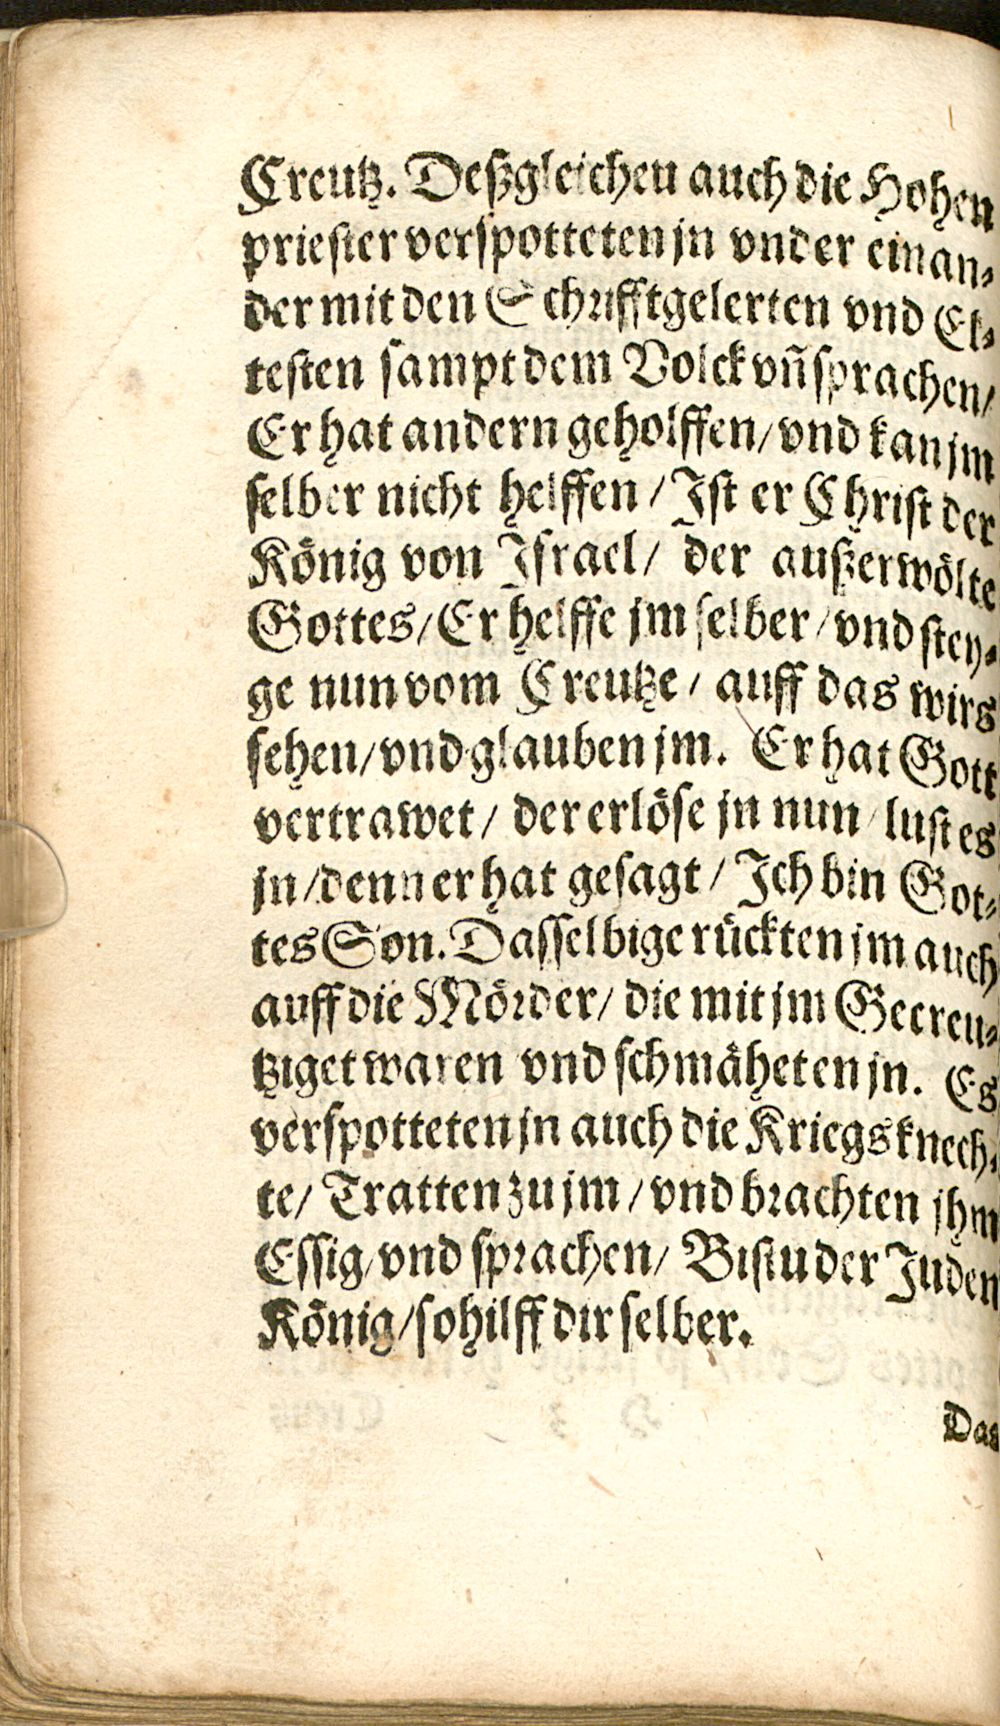 Creutz. Deßgleichen auch die Hohen
priester verspotteten jn vnder einan⸗
der mit den Schrifftgelerten vnd El⸗
testen sampt dem Volck vñ sprachen/
Er hat andern geholffen/ vnd kan jm
selber nicht helffen / Ist er Christ der
König von Israel/ der außerwölte
Gottes/ Er helffe jm selber / vnd stey⸗
ge nun vom Creutze / auff das wirs
sehen/ vnd glauben jm. Er hat Gott
vertrawet / der erlöse jn nun / lust es
jn / denn er hat gesagt / Ich bin Got⸗
tes Son. Dasselbige rückten jm auch
auff die Mörder/ die mit jm Gecreu⸗
tziget waren vnd schmäheten jn. Es
verspotteten jn auch die Kriegsknech⸗
te/ Tratten zu jm / vnd brachten jhm
Essig/ vnd sprachen/ Bistu der Juden
König / so hilff dir selber.
Das